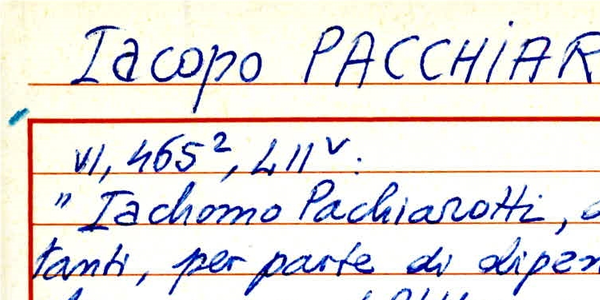 Iacopo PACCHIAR
VI, 465², 411ᵛ.
" Iachomo Pachiarotti,
tanti, per parte di dipen